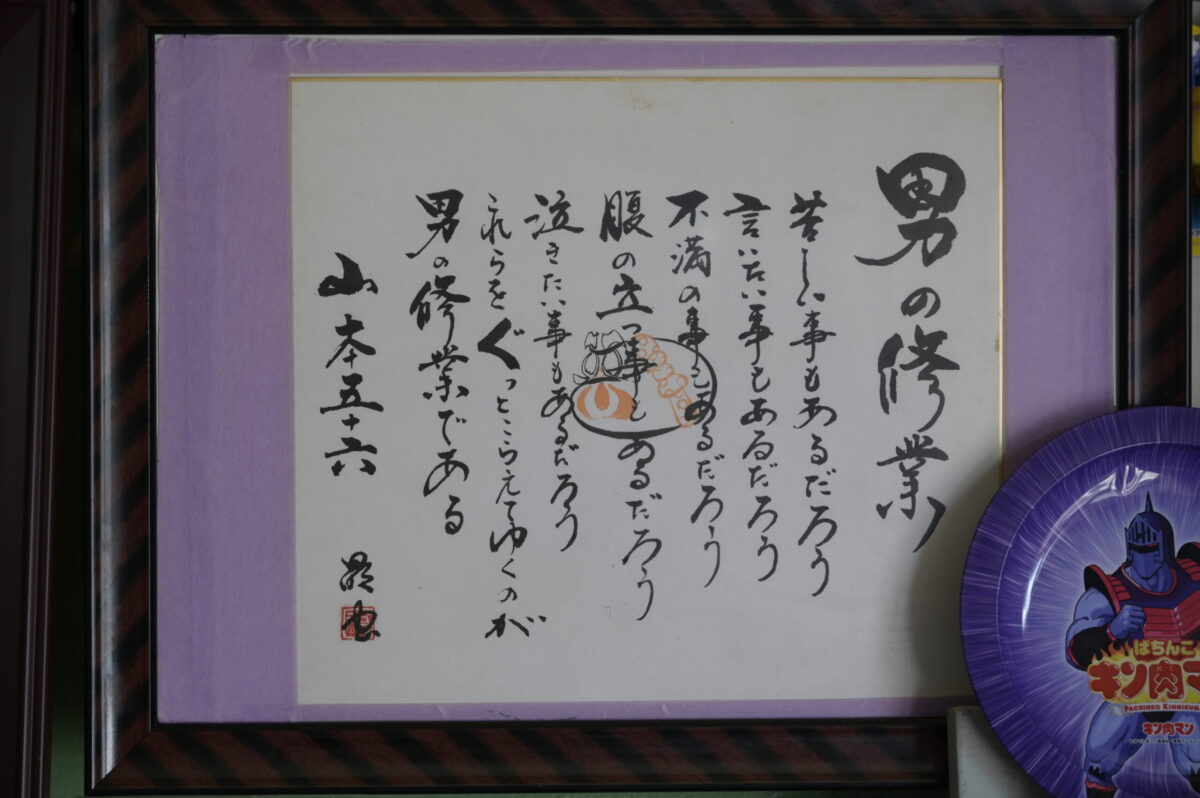 男の修業
苦しい事もあるだろう
言いたい事もあるだろう
不満の事もあるだろう
腹の立つ事もあるだろう
泣きたい事もあるだろう
これらをぐっとこらえてゆくのが
男の修業である
山本五十六
ぱちんこ
キン肉マ
PACHINKO KINNIKUMA
キン肉マン